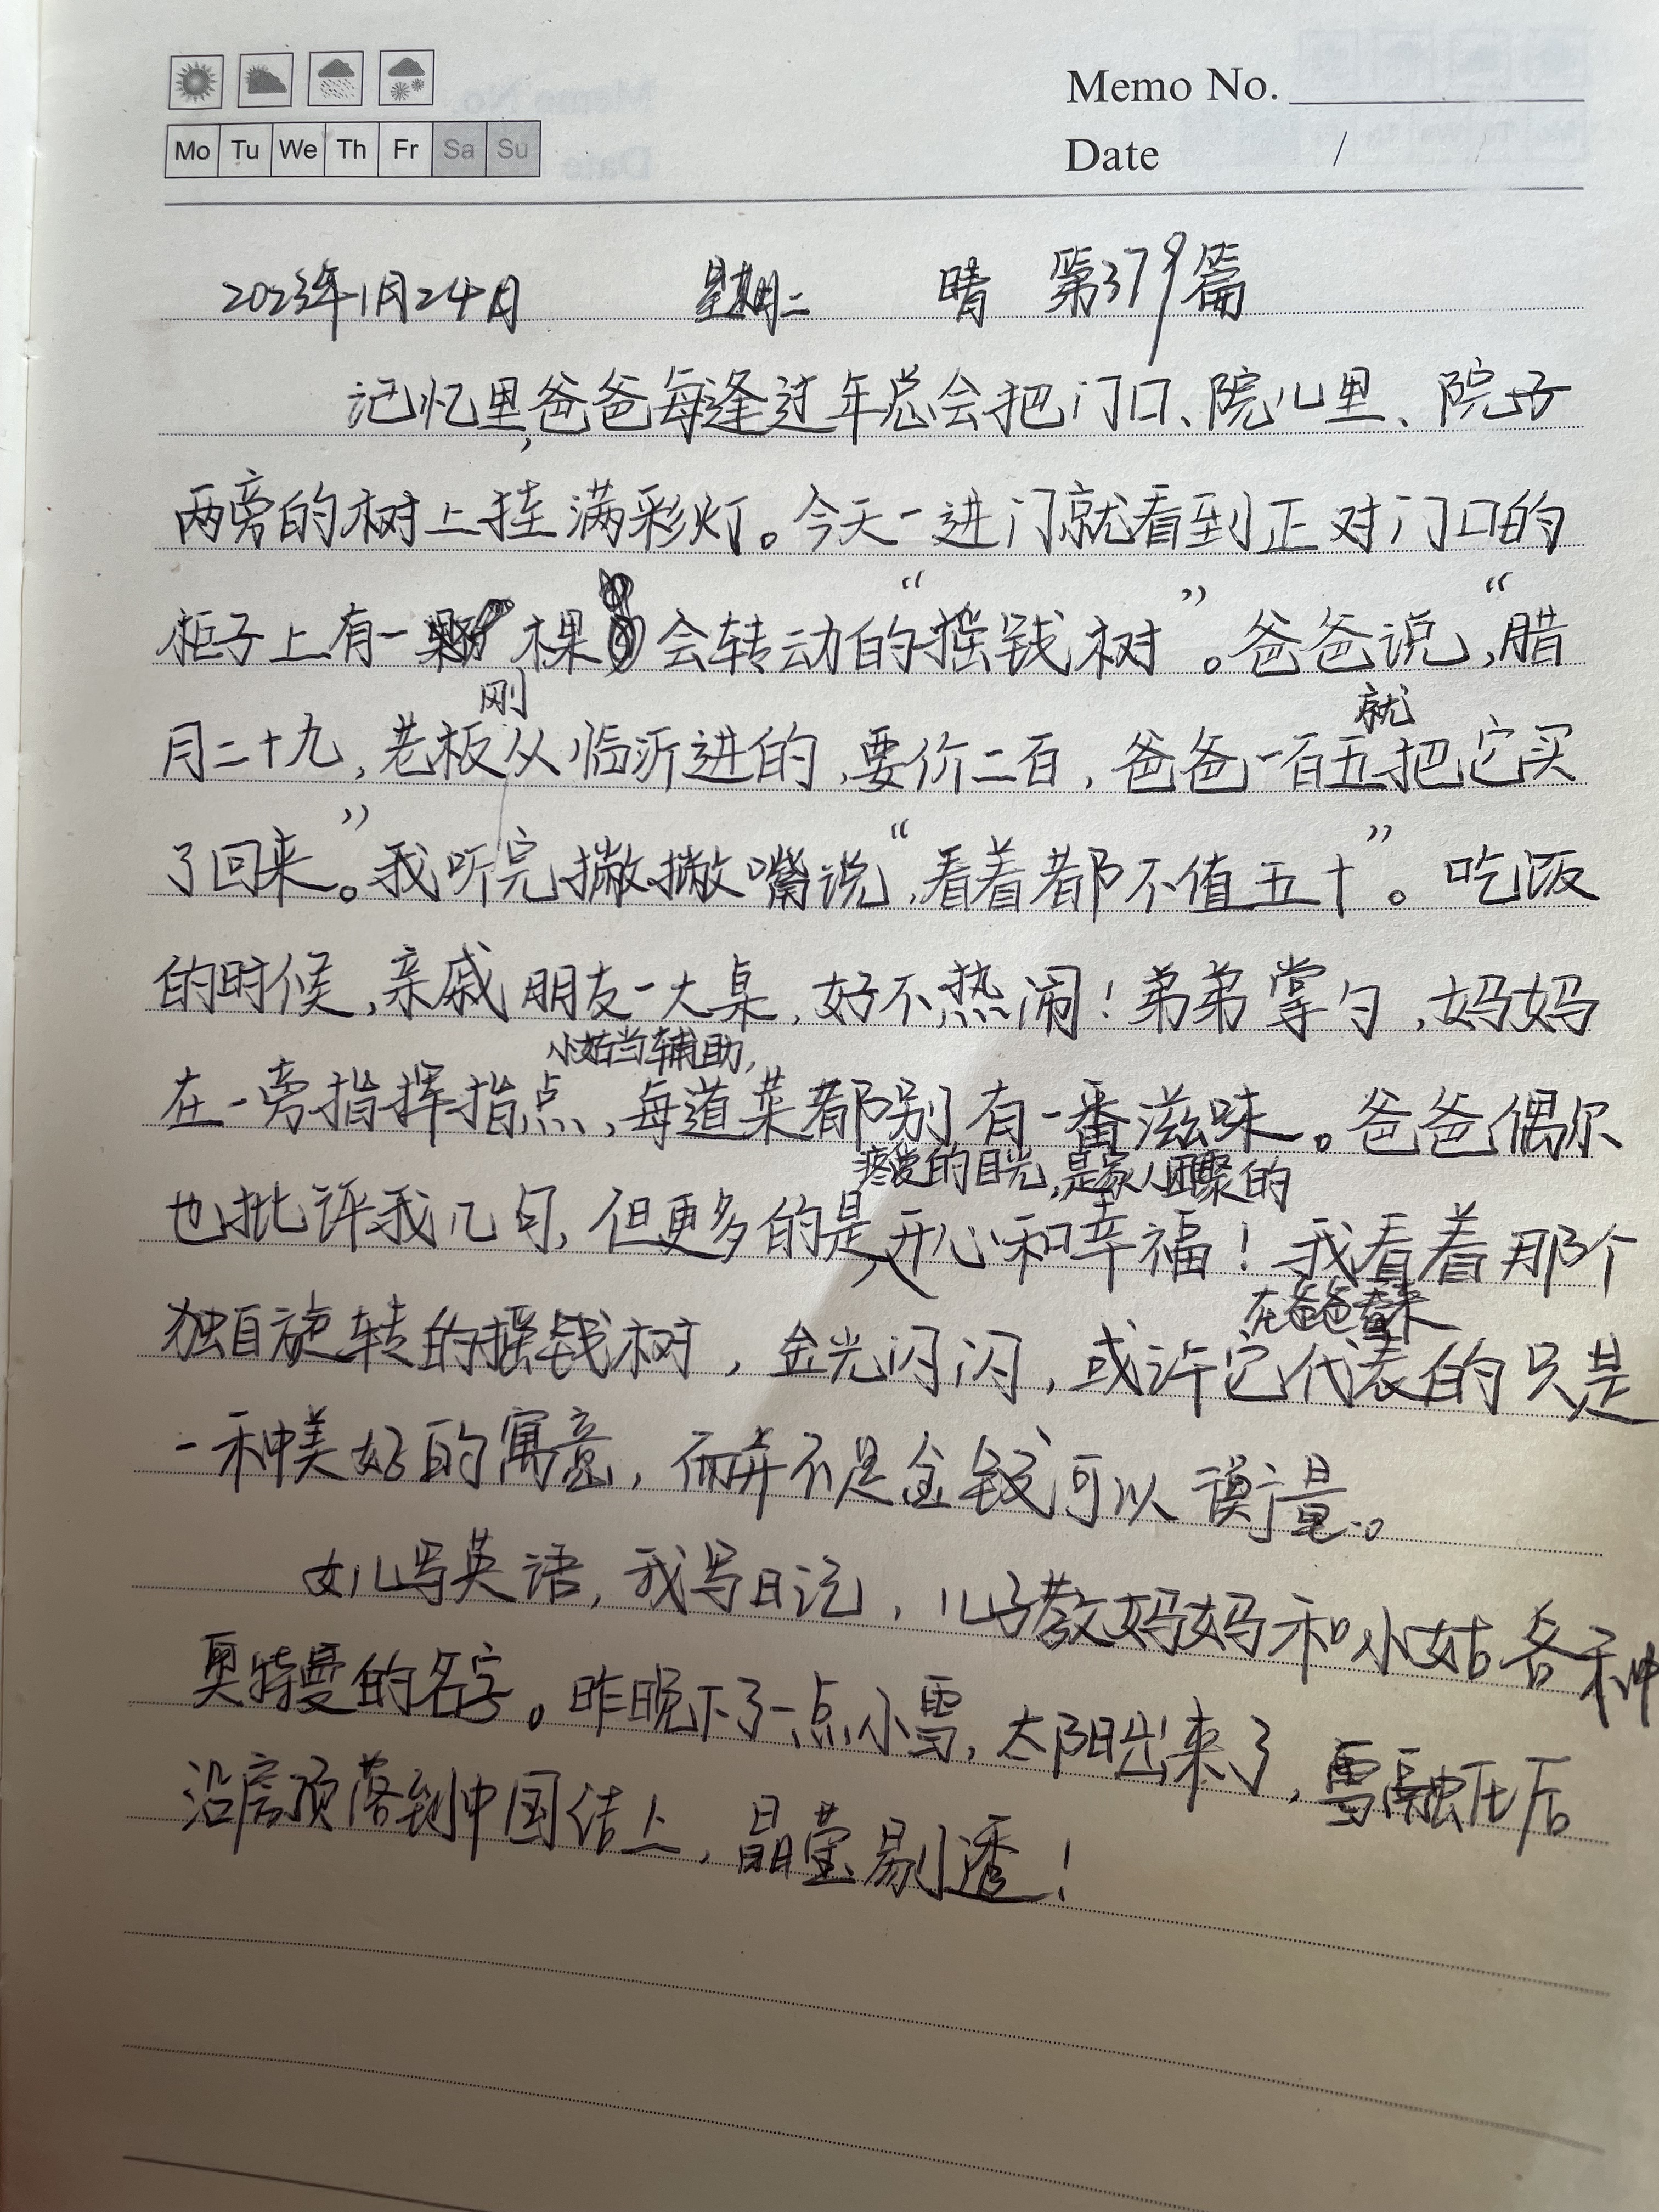 Memo No.
Mo Tu We Th Fr Sa Su
Date /
2023年1月24日 星期二 晴 第379篇
记忆里,爸爸每逢过年总会把门口、院儿里、院子
两旁的树上挂满彩灯。今天一进门就看到正对门口的
柜子上有一棵会转动的“摇钱树”。爸爸说,“腊
月二十九,老板刚从临沂进的,要价二百,爸爸一百五就把它买
了回来”。我听完撇撇嘴说,“看着都不值五十”。吃饭
的时候,亲戚朋友一大桌,好不热闹!弟弟掌勺,妈妈
在一旁指挥指点,小姑当辅助,每道菜都别有一番滋味。爸爸偶尔
也批评我几句,但更多的是疼爱的目光,是家人团聚的开心和幸福!我看着那个
独自旋转的摇钱树,金光闪闪,或许在爸爸看来它代表的只是
一种美好的寓意,而并不是金钱可以衡量。
女儿写英语,我写日记,儿子教妈妈和小姑各种
奥特曼的名字。昨晚下了一点小雪,太阳出来了,雪融化后
沿房顶落到中国结上,晶莹剔透!